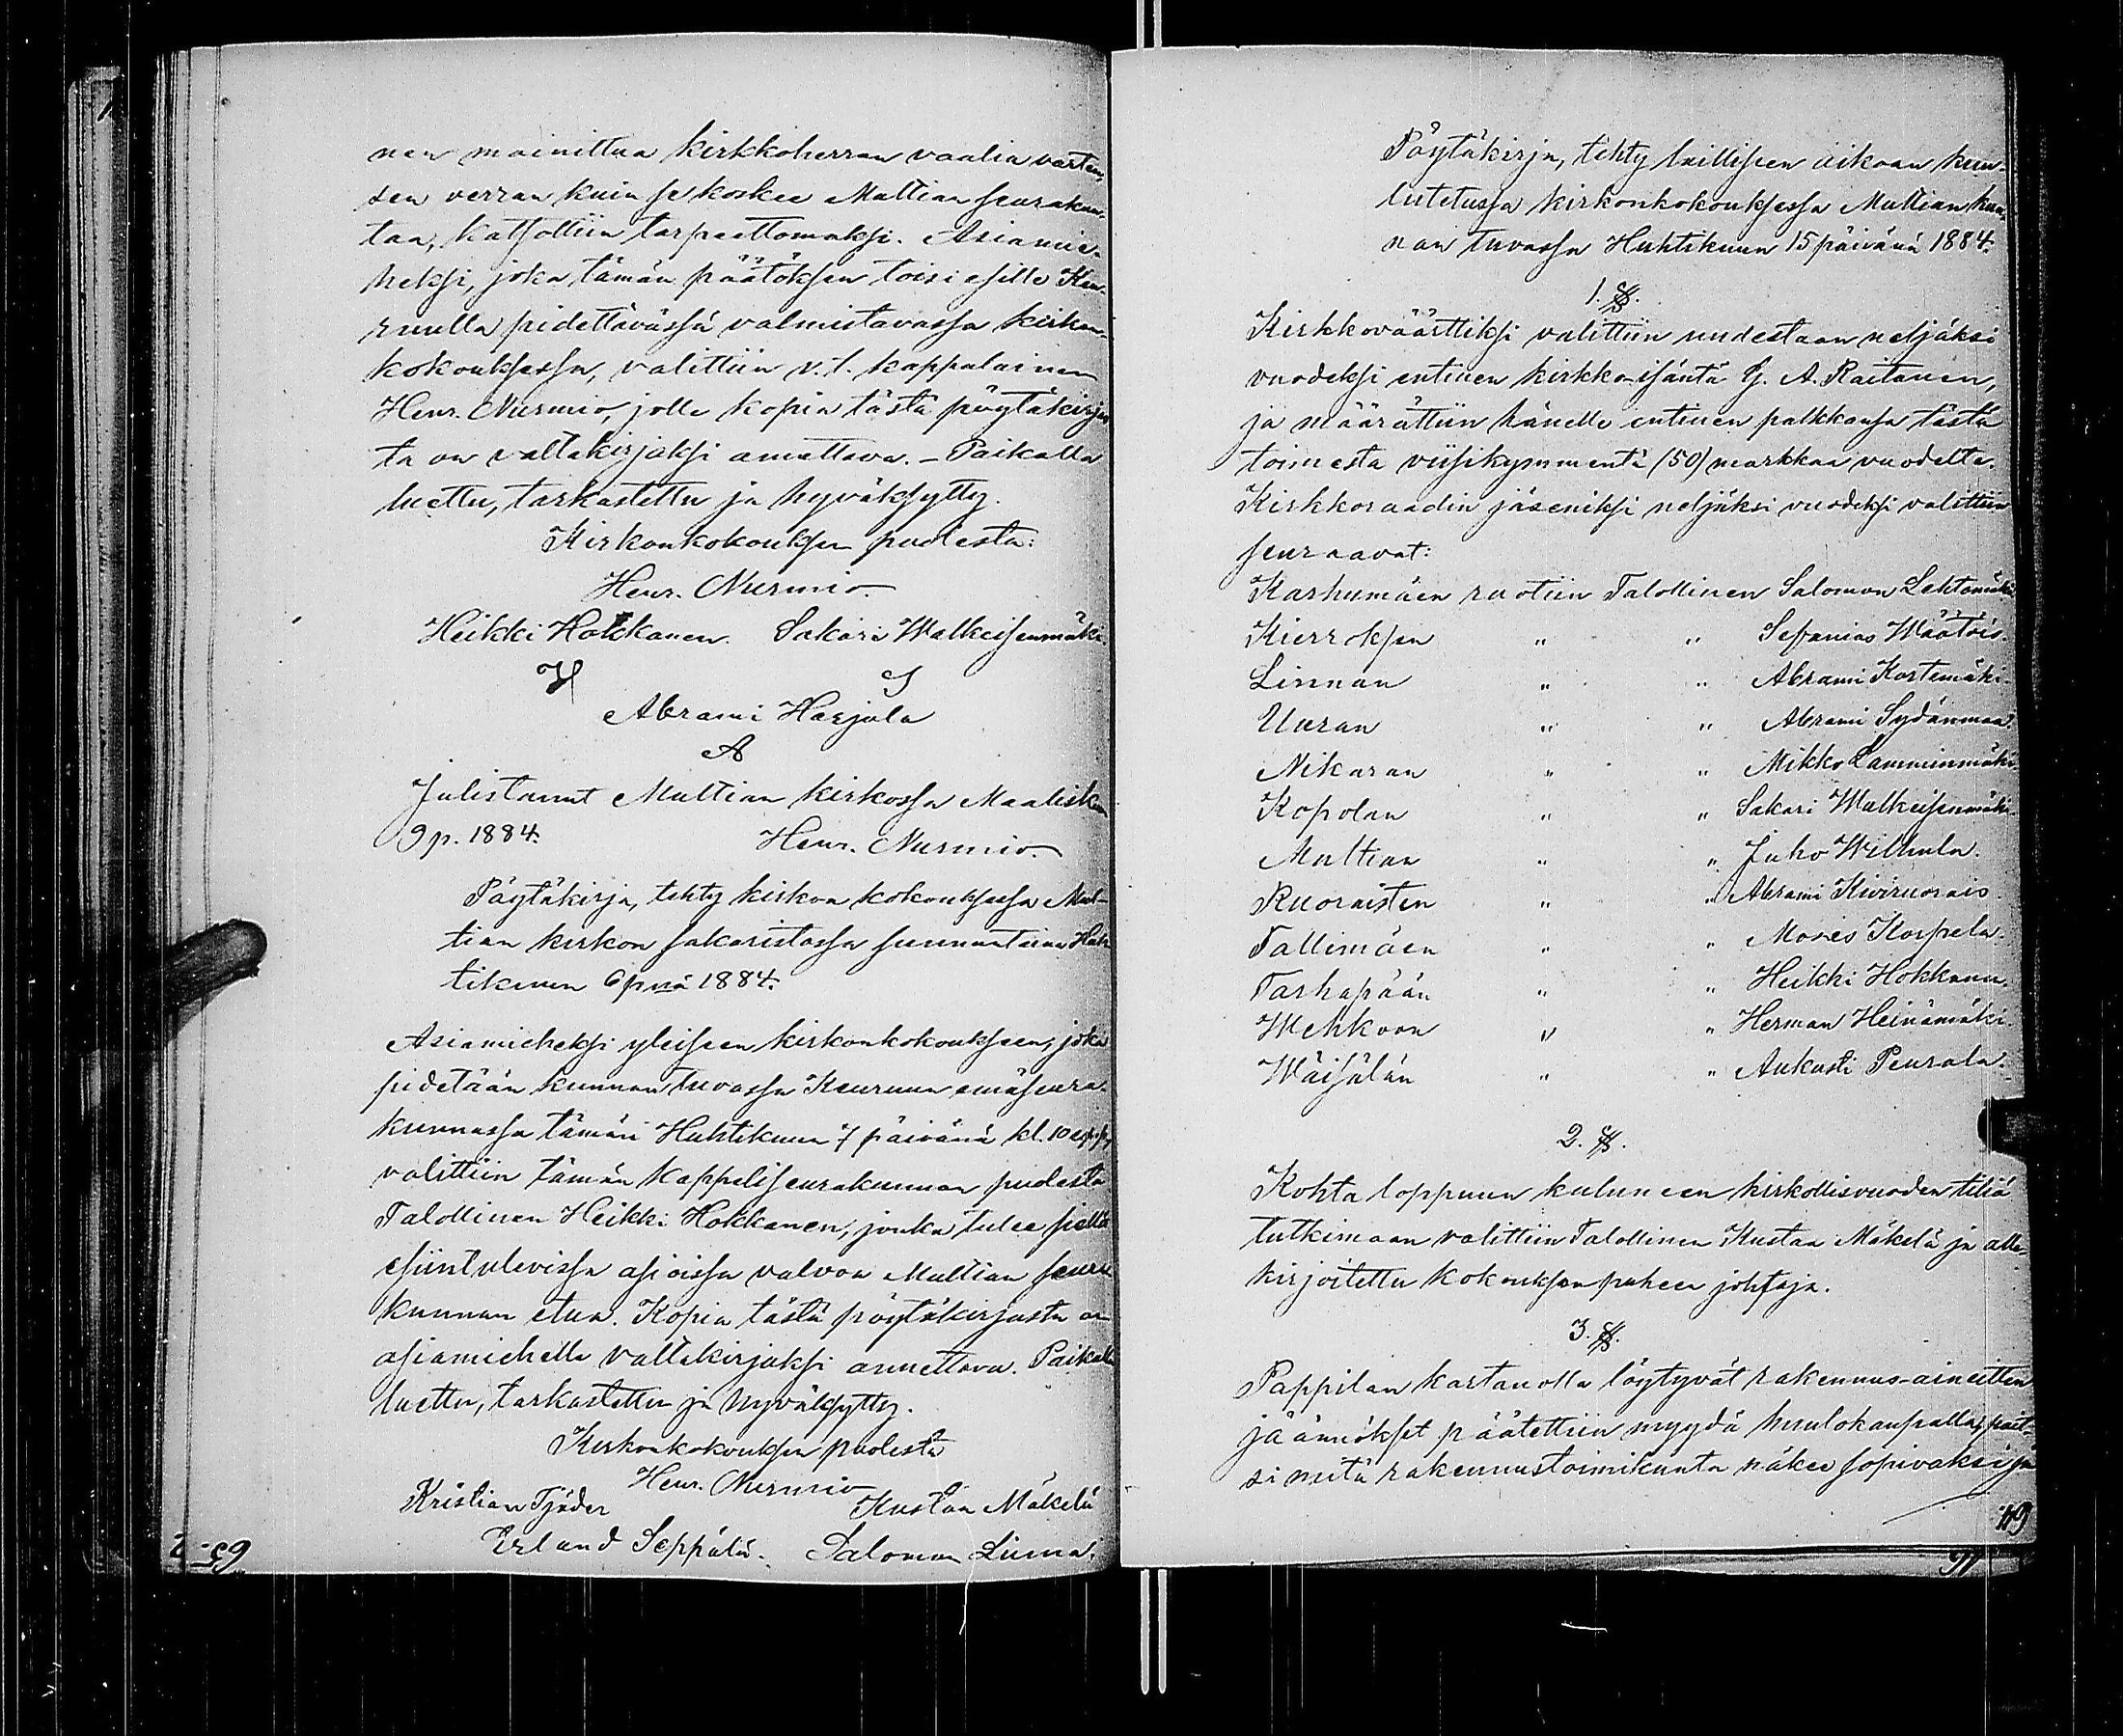 nen mainittua kirkkoherran vaalia varten,
sen verran kuin se koskee Multian seurakun-
taa, katsottiin tarpeettomaksi. Asiamie-
heksi, joka tämän päätöksen toisi esille Keu-
ruulla pidettävässä valmistavassa kirkon-
kokouksessa, valittiin v.t. kappalainen
Henr. Nurmio, jolle kopia tästä pöytäkirjas
ta on valtakirjaksi annettava. – Paikalla
luettu, tarkastettu ja hyväksytty.
Kirkonkokouksen puolesta:
Henr. Nurmio.
Heikki Hokkanen. Sakari Walkeisenmäki.
H S
Abrami Harjula
A
Julistanut Multian kirkossa Maalisk.
9 p. 1884. Henr. Nurmio.
Pöytäkirja, tehty kirkon kokouksessa Mul-
tian kirkon sakaristossa sunnuntaina Huh
tikuun 6 pnä 1884.
Asiamieheksi yleiseen kirkonkokoukseen, joka
pidetään kunnan tuvassa Keuruun emäseura-
kunnassa tämän Huhtikuun 7 päivänä kl. 10 e.p.p.,
valittiin tämän Kappeliseurakunnan puolesta
Talollinen Heikki Hokkanen, jonka tulee siellä
esiintulevissa asioissa valvoa Multian seura
kunnan etua. Kopia tästä pöytäkirjasta on
asiamiehelle valtakirjaksi annettava. Paikalla
luettu, tarkastettu ja hyväksytty.
Kirkonkokouksen puolesta
Henr. Nurmio
Kristian Tjäder Kustaa Mäkelä
Erland Seppälä. Salomon Liima.
63
Pöytäkirja, tehty lailliseen aikaan kuu-
lutetussa kirkonkokouksessa Multian kun-
nan tuvassa Huhtikuun 15 päivänä 1884.
1. §.
Kirkkoväärtiksi valittiin uudestaan neljäksi
vuodeksi entinen kirkko-isäntä G. A. Raitanen,
ja määrättiin hänelle entinen palkkansa tästä
toimesta viisikymmentä (50) markkaa vuodelta.
Kirkkoraadin jäseniksi neljäksi vuodeksi valittiin
seuraavat:
Karhumäen ruotiin Talollinen Salomon Lehtomäki
Kierroksen " " Sefanias Määttöis.
Linnan " " Abrami Kortemäki.
Uuran " " Abrami Sydänmaa.
Nikaran " " Mikko Lamminmäki.
Kopolan " " Sakari Walkeisenmäki.
Multian " " Juho Wilhula.
Ruoraisten " " Abrami Kiviruorais.
Tallimäen " " Moses Korpela.
Tarhapään " " Heikki Hokkanen.
Wehkoon " " Herman Heinämäki.
Wäisälän " " Aukusti Peurala.
2. §.
Kohta loppuun kuluneen kirkollisvuoden tiliä
tutkimaan valittiin Talollinen Kustaa Mäkelä ja alle-
kirjoitettu kokouksen puheen johtaja.
3. §.
Pappilan kartanolla löytyvät rakennus-aineitten
jäännökset päätettiin myydä huutokaupalla, pait-
si mitä rakennustoimikunta näkee sopivaksi ja